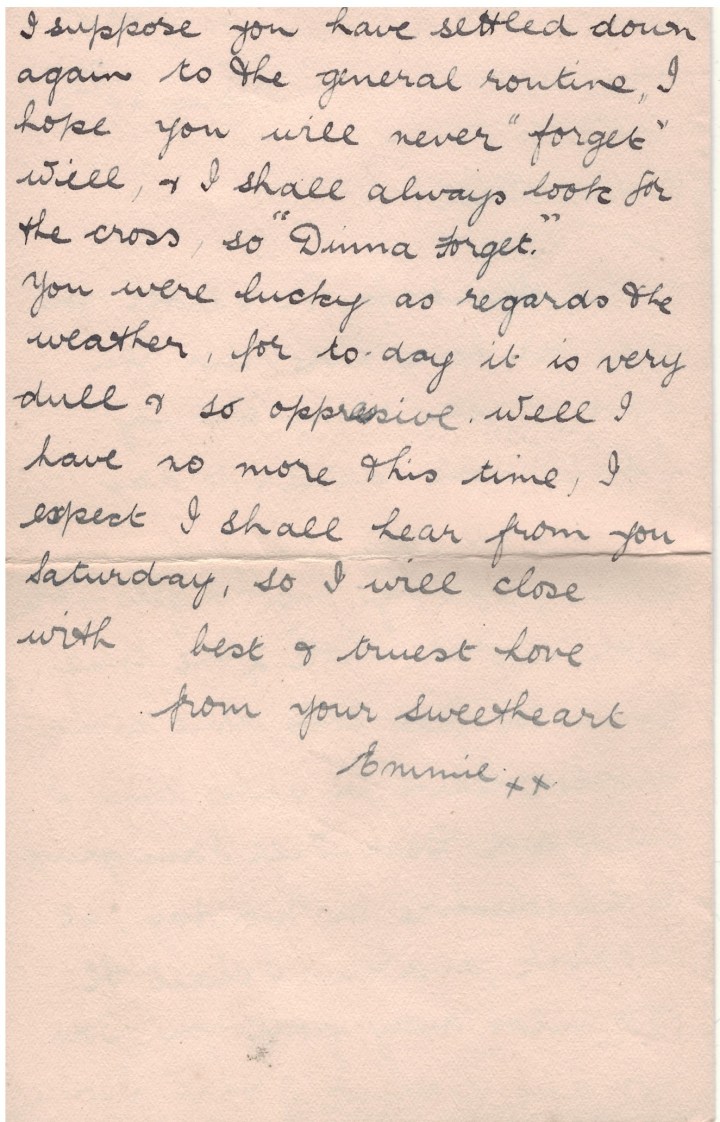 I suppose you have settled down
again to the general routine, I
hope you will never "forget"
Will, & I shall always look for
the cross, so "Dinna Forget."
You were lucky as regards the
weather, for to-day it is very
dull & so oppressive. Well I
have no more this time, I
expect I shall hear from you
Saturday, so I will close
with best & truest love
from your sweetheart
Emmie. xx